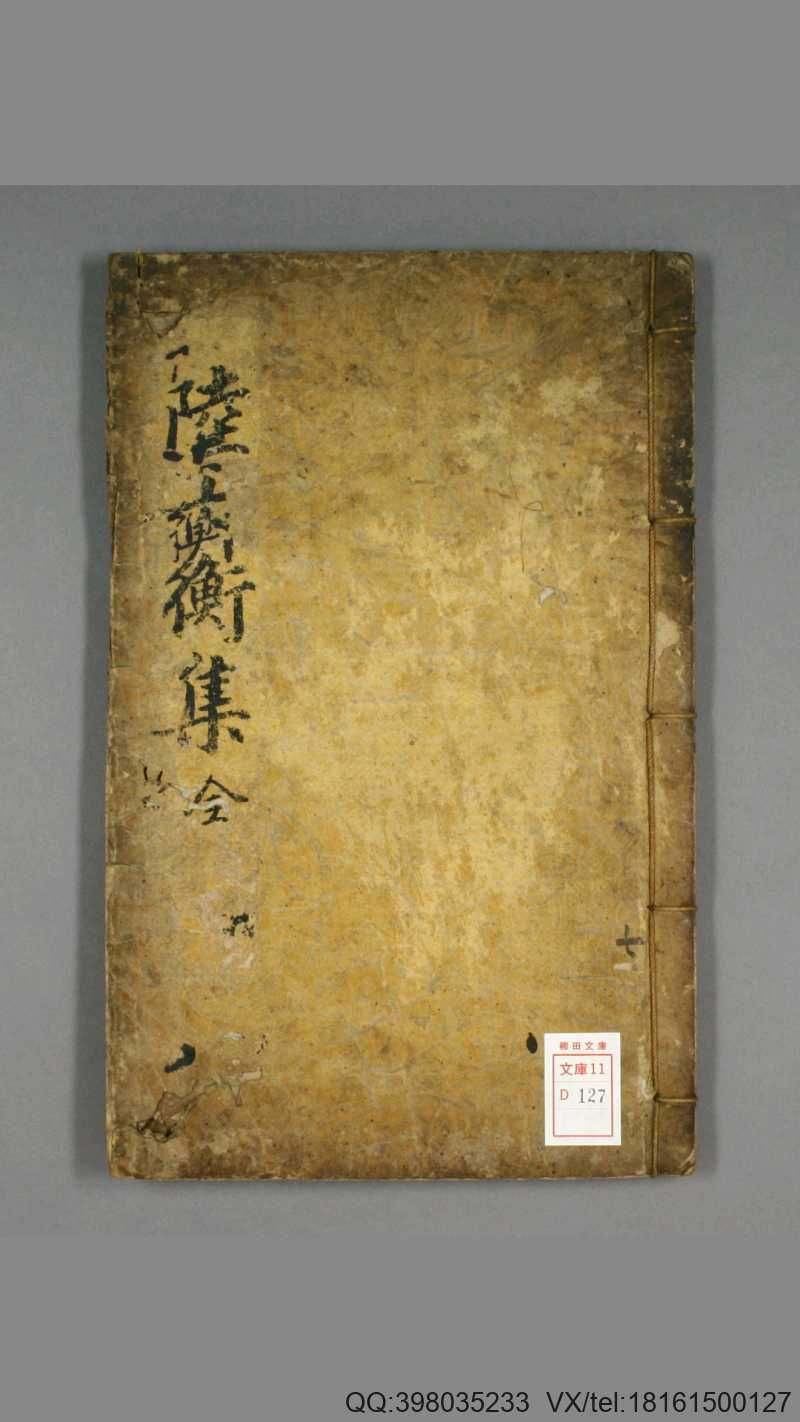 陸士衡集 全
七
柳田文庫
文庫11
D 127
QQ:398035233 VX/tel:18161500127